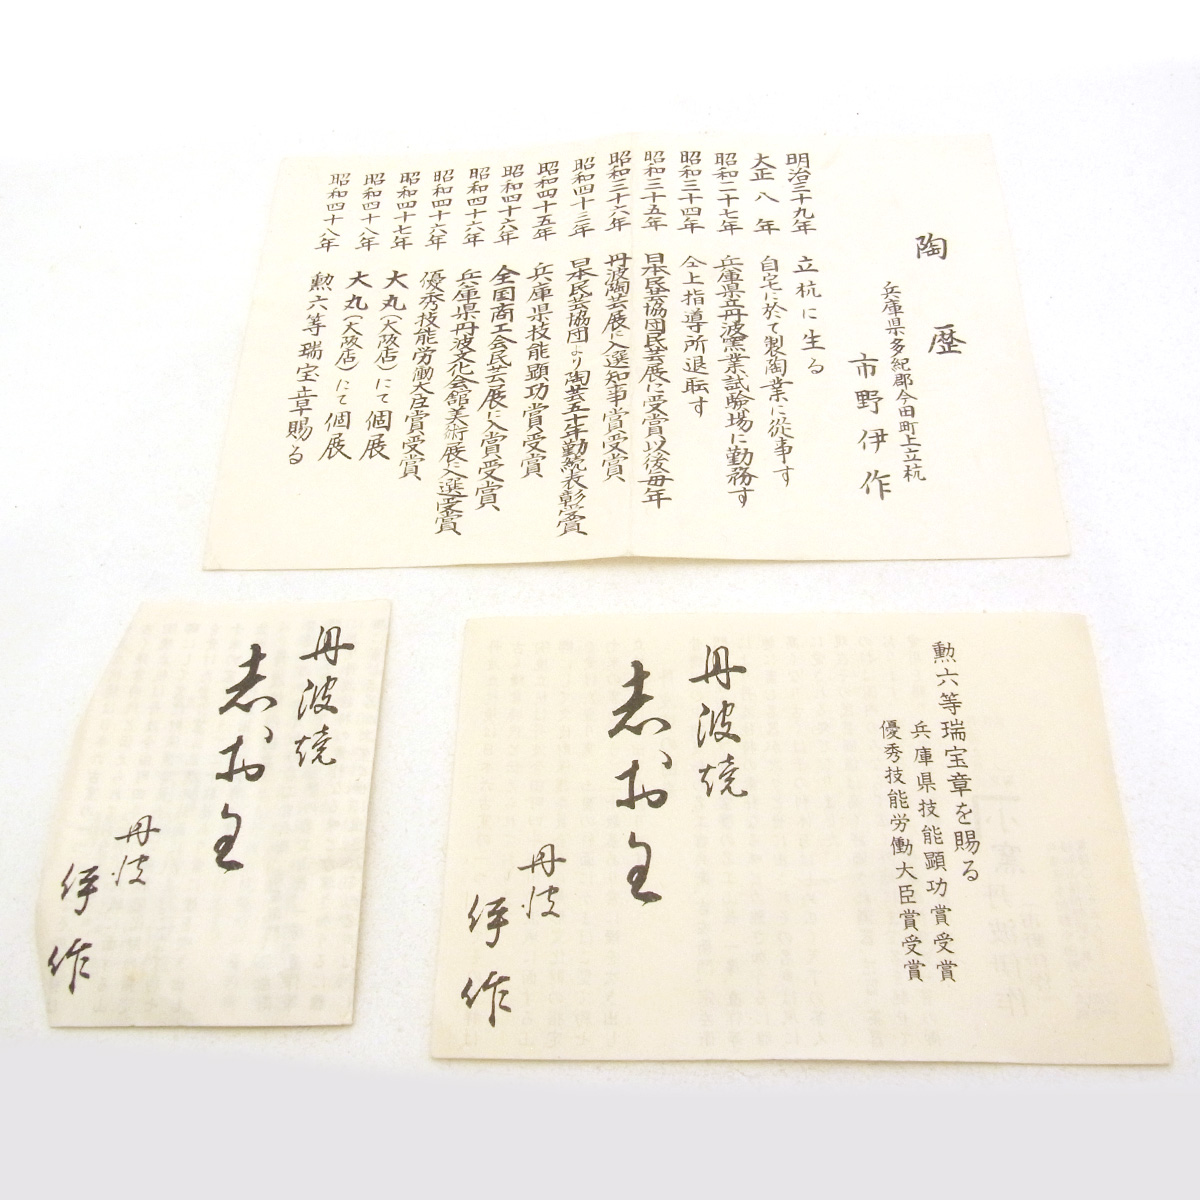 陶歴
兵庫県多紀郡今田町上立杭
市野伊作
明治三十九年 立杭に生る
大正八年 自宅に於て製陶業に従事す
昭和二十七年 兵庫県立丹波窯業試験場に勤務す
昭和三十四年 仝上指導所退転す
昭和三十五年 日本民芸協団民芸展に受賞以後毎年
昭和三十六年 丹波陶芸展に入選知事賞受賞
昭和四十三年 日本民芸協団より陶芸五十年勤続表彰受賞
昭和四十五年 兵庫県技能顕功賞受賞
昭和四十六年 全国商工会民芸展に入賞受賞
昭和四十六年 兵庫県丹波文化会館美術展に入選受賞
昭和四十六年 優秀技能労働大臣賞受賞
昭和四十七年 大丸(大阪店)にて個展
昭和四十八年 大丸(大阪店)にて個展
昭和四十八年 勲六等瑞宝章賜る
丹波焼
志お里
丹波
伊作
勲六等瑞宝章を賜る
兵庫県技能顕功賞受賞
優秀技能労働大臣賞受賞
丹波焼
志お里
丹波
伊作